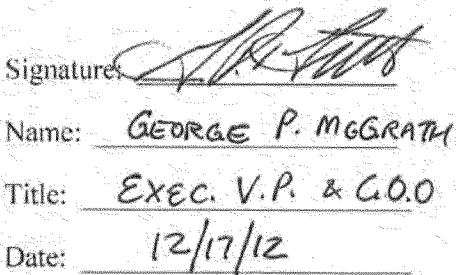 Signature:
Name: GEORGE P. McGRATH
Title: EXEC. V.P. & C.O.O
Date: 12/17/12